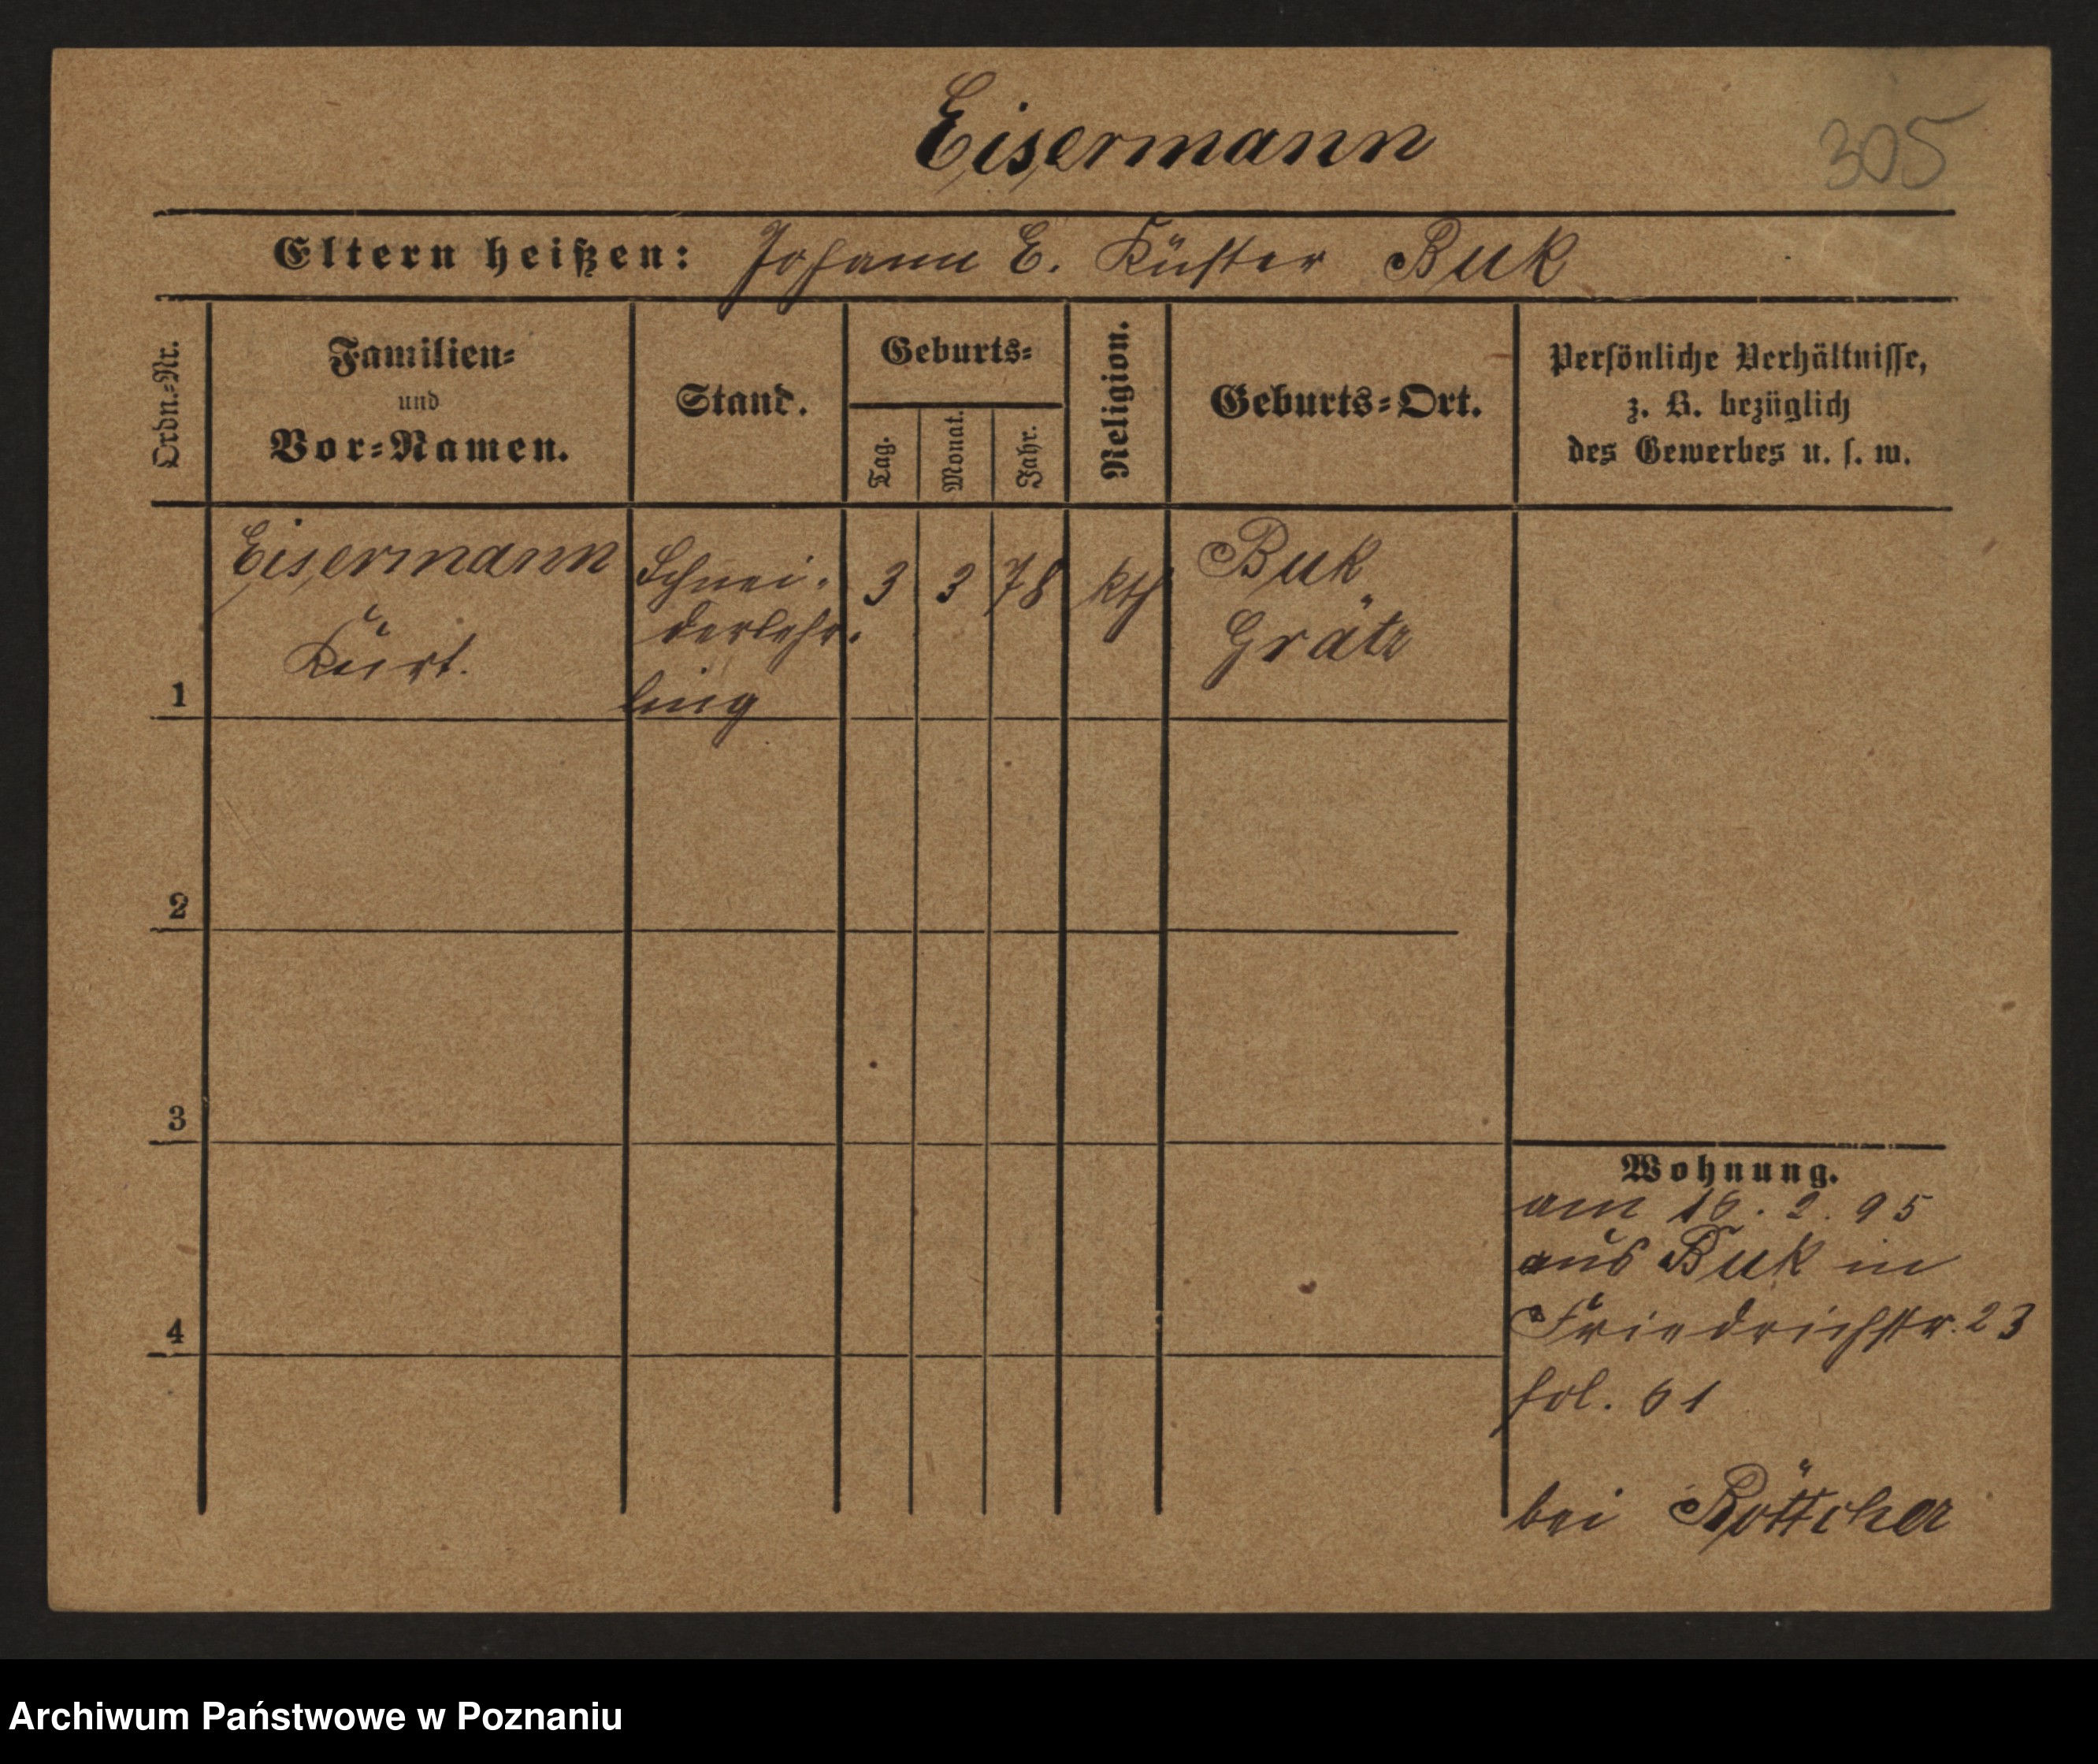 Eisermann
305
Eltern heißen: Johann E. Küster Buk
Ordn.=Nr.
Familien=
und
Vor=Namen.
Stand.
Geburts=
Tag.
Monat.
Jahr.
Religion.
Geburts=Ort.
Persönliche Verhältnisse,
z. B. bezüglich
des Gewerbes u. s. w.
1
Eisermann
Kurt.
Schnei-
derlehr-
ling
3
3
78
kth
Buk
Grätz
2
3
4
Wohnung.
am 16. 2. 95
aus Buk in
Friedrichstr. 23
fol. 61
bei Röttcher
Archiwum Państwowe w Poznaniu